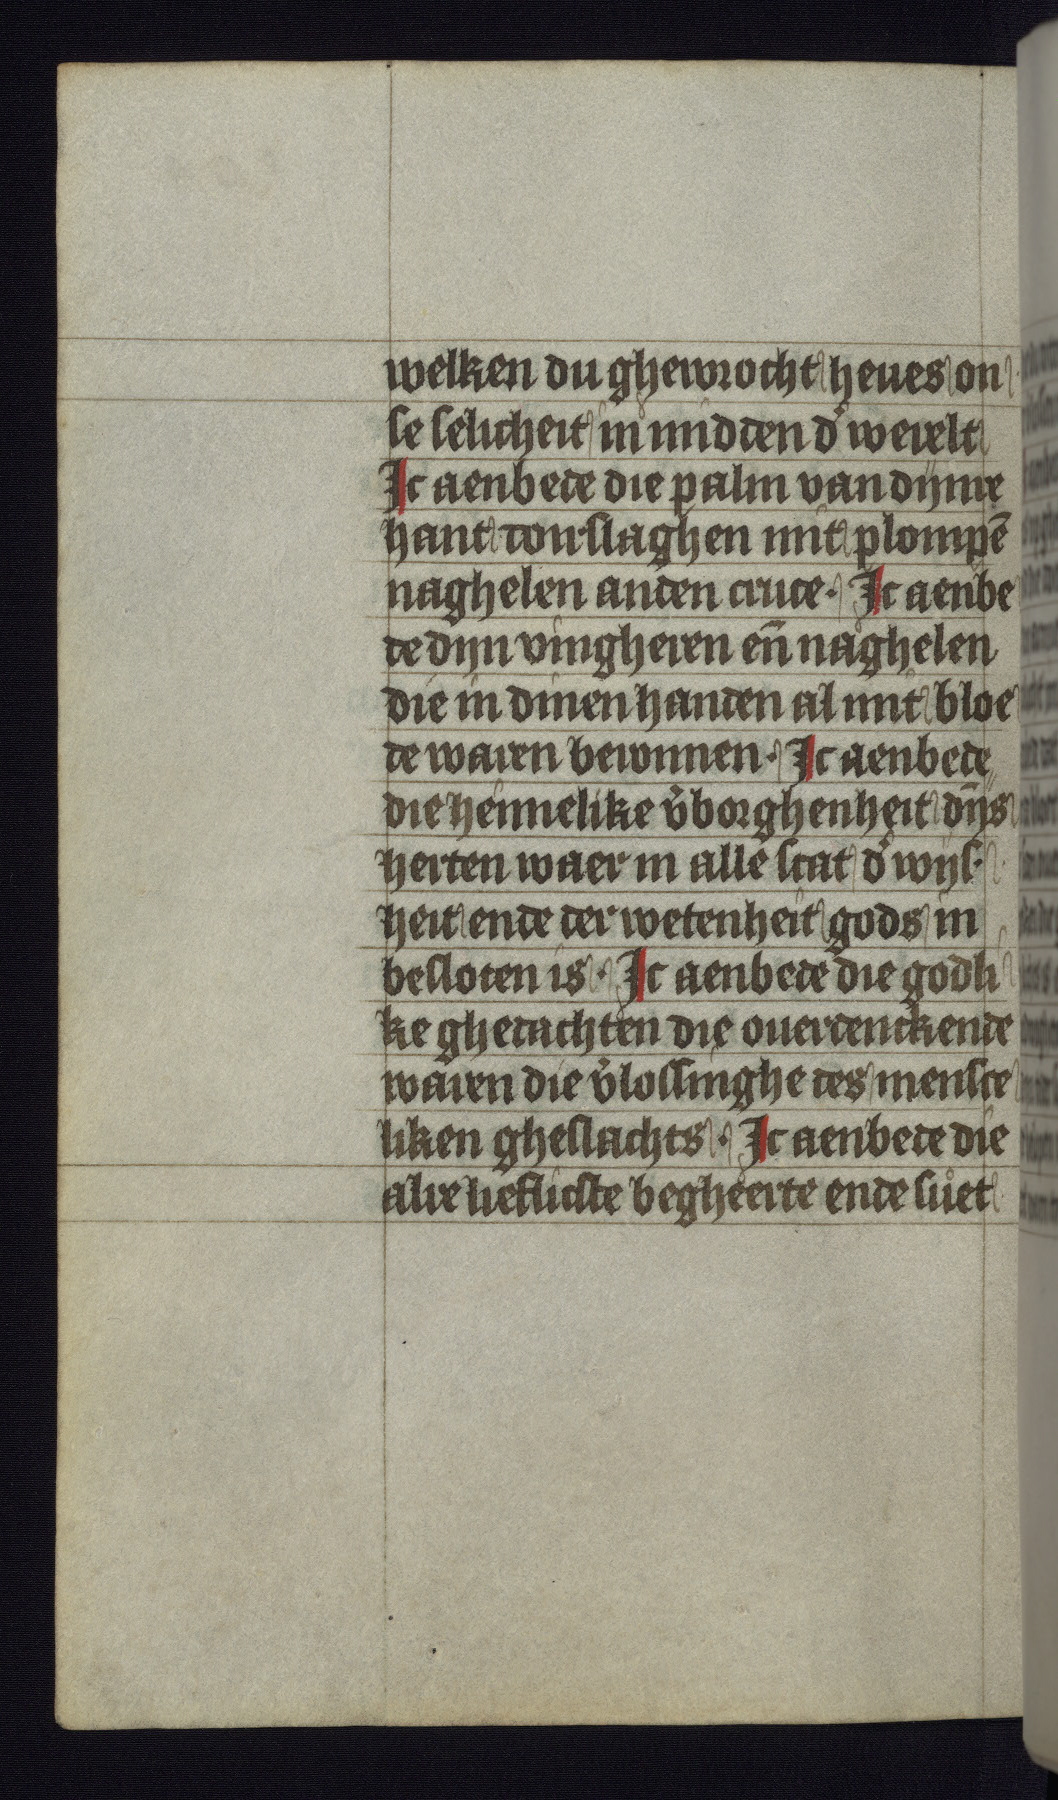 welken du ghewrocht heues on
se selicheit in midden d' werelt
Ic aenbede die palm van dijnre
hant doirslaghen mit plompē
naghelen anden cruce. Ic aenbe
de dijn vingheren eñ naghelen
die in dinen handen al mit bloe
de waren bewnnen. Ic aenbede
die heimelike v̉borghenheit dijns
herten waer in alle scat d' wijs
heit ende der wetenheit gods in
besloten is. Ic aenbede die godli
ke ghedachten die ouerdenckende
waren die v̉lossinghe des mensce
liken gheslachts. Ic aenbede die
alre lieflicste begheerte ende suet